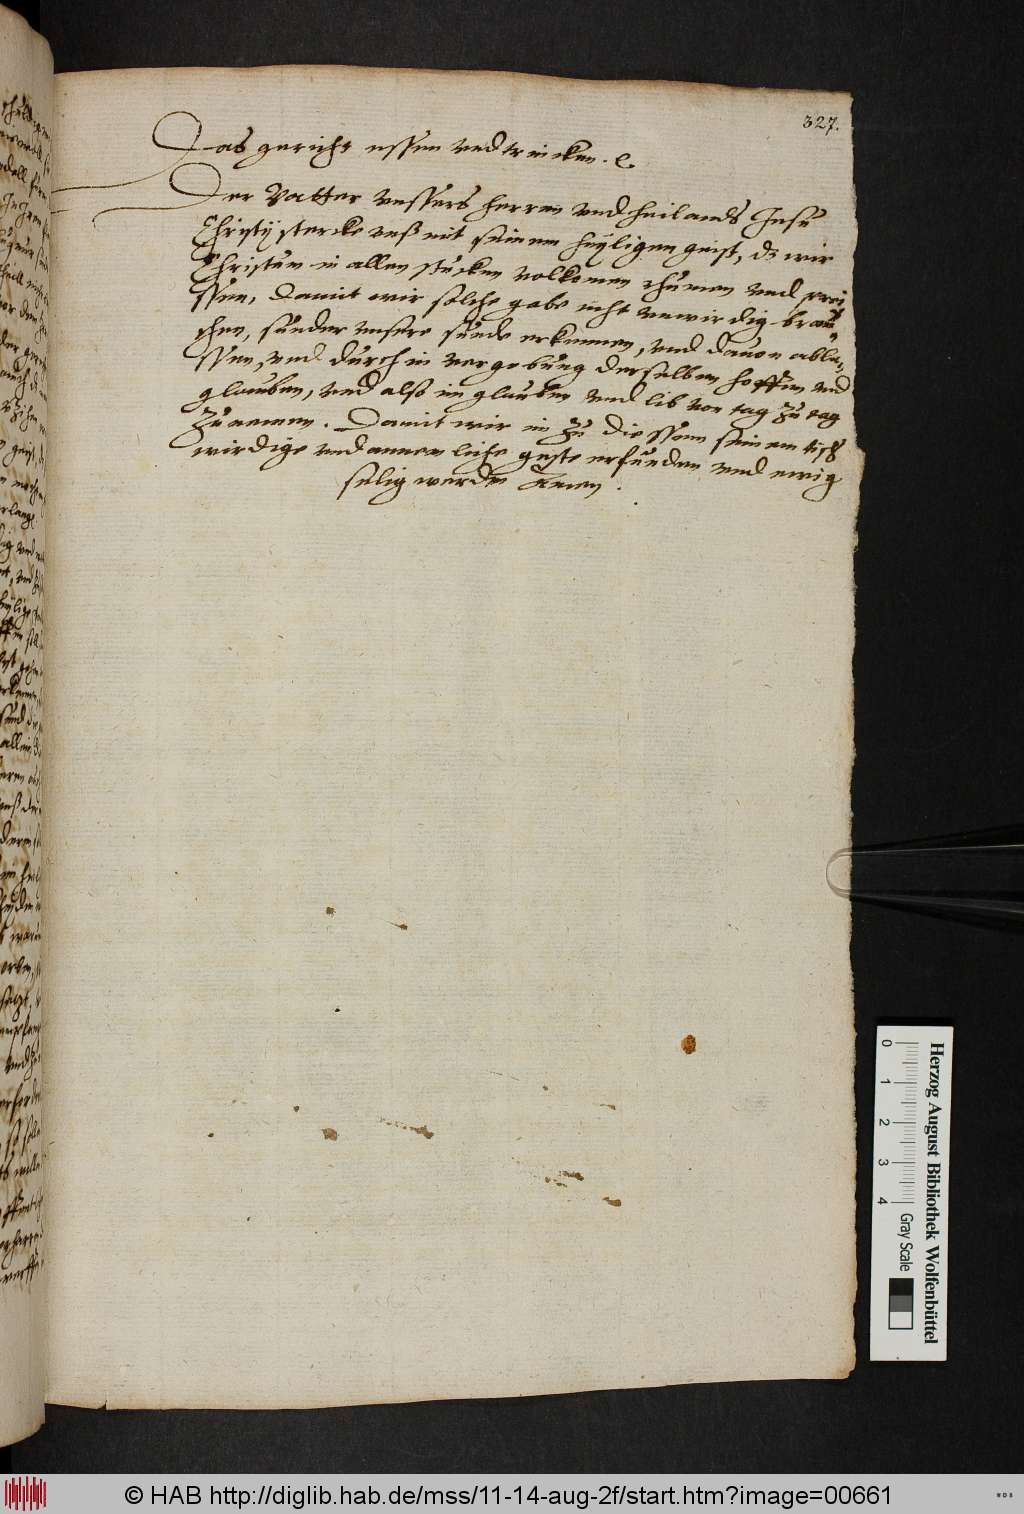 327.
Das gericht essen vnd trincken. ⁊c.
Der Vatter vnssers herren vnd heilands Jesu
Christy stercke vnß mit seinem heyligen geist, dz wir
Christum in allen stucken volkomen rhumen vnd prei
ssen, Damit wir solche gabe nicht vnwirdig brau=
chen, sunder vnsere sunde erkennen, vnd dauon abla=
ssen, vnd durch in vergebung derselben hoffen vnd
glauben, vnd also im glauben vnd lib von tag zu tag
Zunemen. Damit wir im zu diessem seinem tisch
wirdige vnd annemliche geste erfunden vnd ewig
selig werden Amen.
Herzog August Bibliothek Wolfenbüttel
0 1 2 3 4 Gray Scale
© HAB http://diglib.hab.de/mss/11-14-aug-2f/start.htm?image=00661